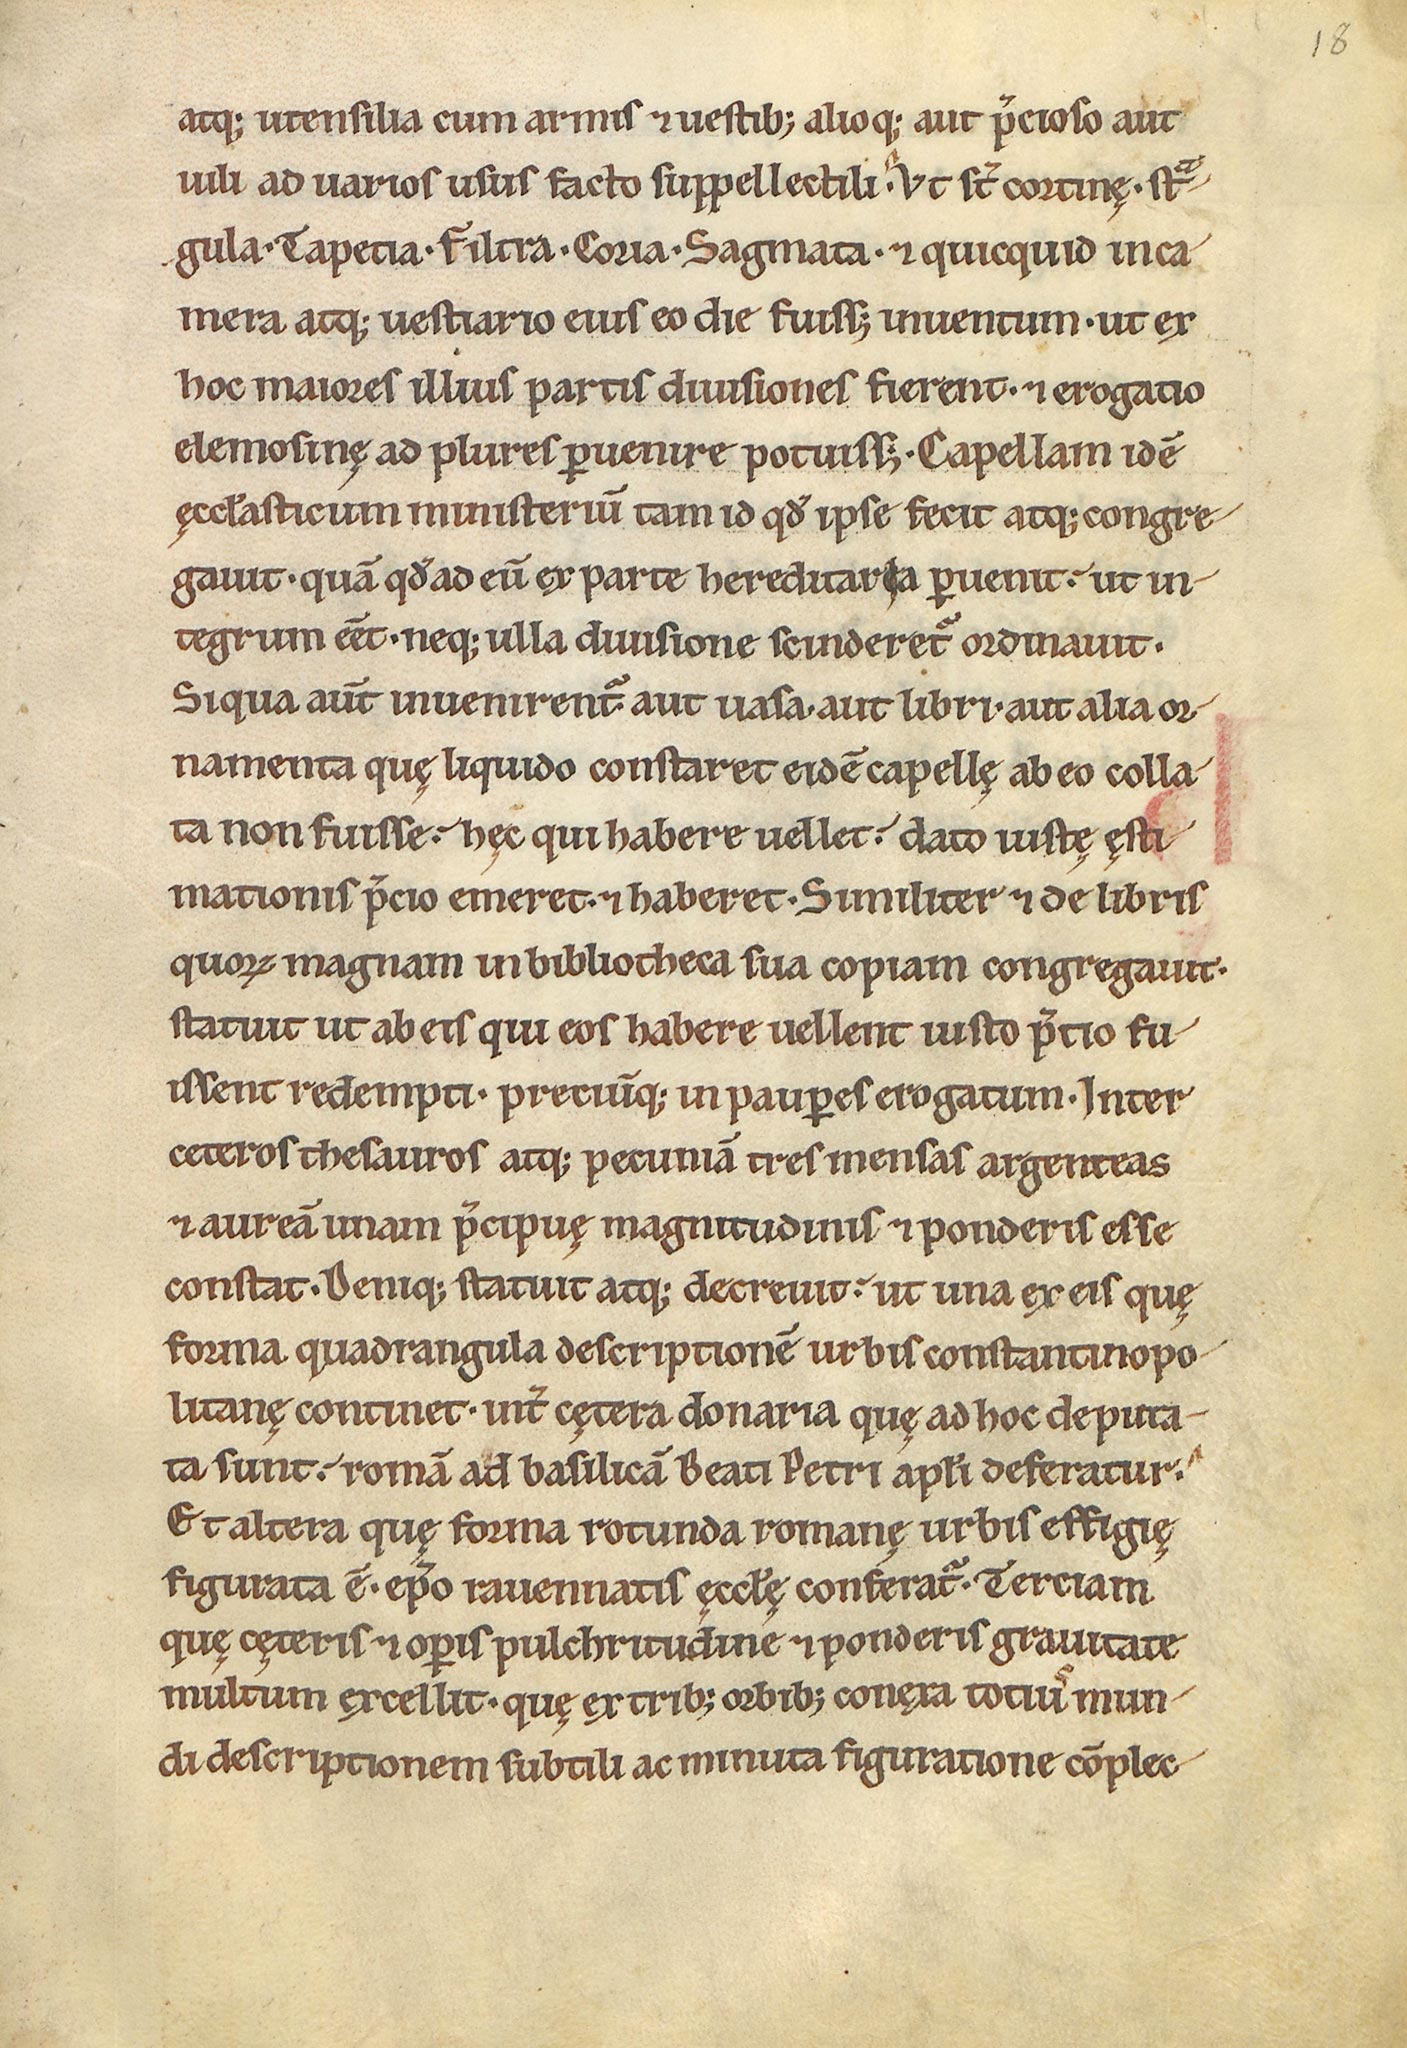 18
atq; utensilia cum armis ⁊ uestib; alioq; aut p̄cioso aut
uili ad uarios usus facto suppellectili. Vt st̄ cortinę. stͣ-
gula. Tapetia. Filtra. Coria. Sagmata. ⁊ quicquid in ca-
mera atq; uestiario eius eo die fuiss; inuentum. ut ex
hoc maiores illius partis diuisiones fierent. ⁊ erogatio
elemosinę ad plures ꝑuenire potuiss;. Capellam id ē
ęccl̄asticum ministeriū tam id qđ ipse fecit atq; congre-
gauit. quā qđ ad eū ex parte hereditaria ꝑuenit. ut in-
tegrum eēt. neq; ulla diuisione scinderet᷑ ordinauit.
Si qua aūt inuenirent᷑ aut uasa. aut libri. aut alia or-
namenta quę liquido constaret eidē capellę ab eo colla-
ta non fuisse. hęc qui habere uellet. dato iustę ęsti-
mationis p̄cio emeret. ⁊ haberet. Similiter ⁊ de libris
quoꝝ magnam in bibliotheca sua copiam congregauit.
statuit ut ab eis qui eos habere uellent iusto p̄tio fu-
issent redempti. preciūq; in pauꝑes erogatum. Inter
ceteros thesauros atq; pecuniā tres mensas argenteas
⁊ aureā unam p̄cipuę magnitudinis ⁊ ponderis esse
constat. Deniq; statuit atq; decreuit. ut una ex eis quę
forma quadrangula descriptionē urbis constantinopo-
litanę continet. int̄ cętera donaria quę ad hoc deputa-
ta sunt. romā ad basilicā Beati Petri apl̄i deferatur.
Et altera quę forma rotunda romanę urbis effigię
figurata ē. ep̄o rauennatis ęccl̄ę conferat᷑. Terciam
quę cęteris ⁊ oꝑis pulchritudine ⁊ ponderis grauitate
multum excellit. quę ex trib; orbib; conexa totiuˢ mun-
di descriptionem subtili ac minuta figuratione cōplec-